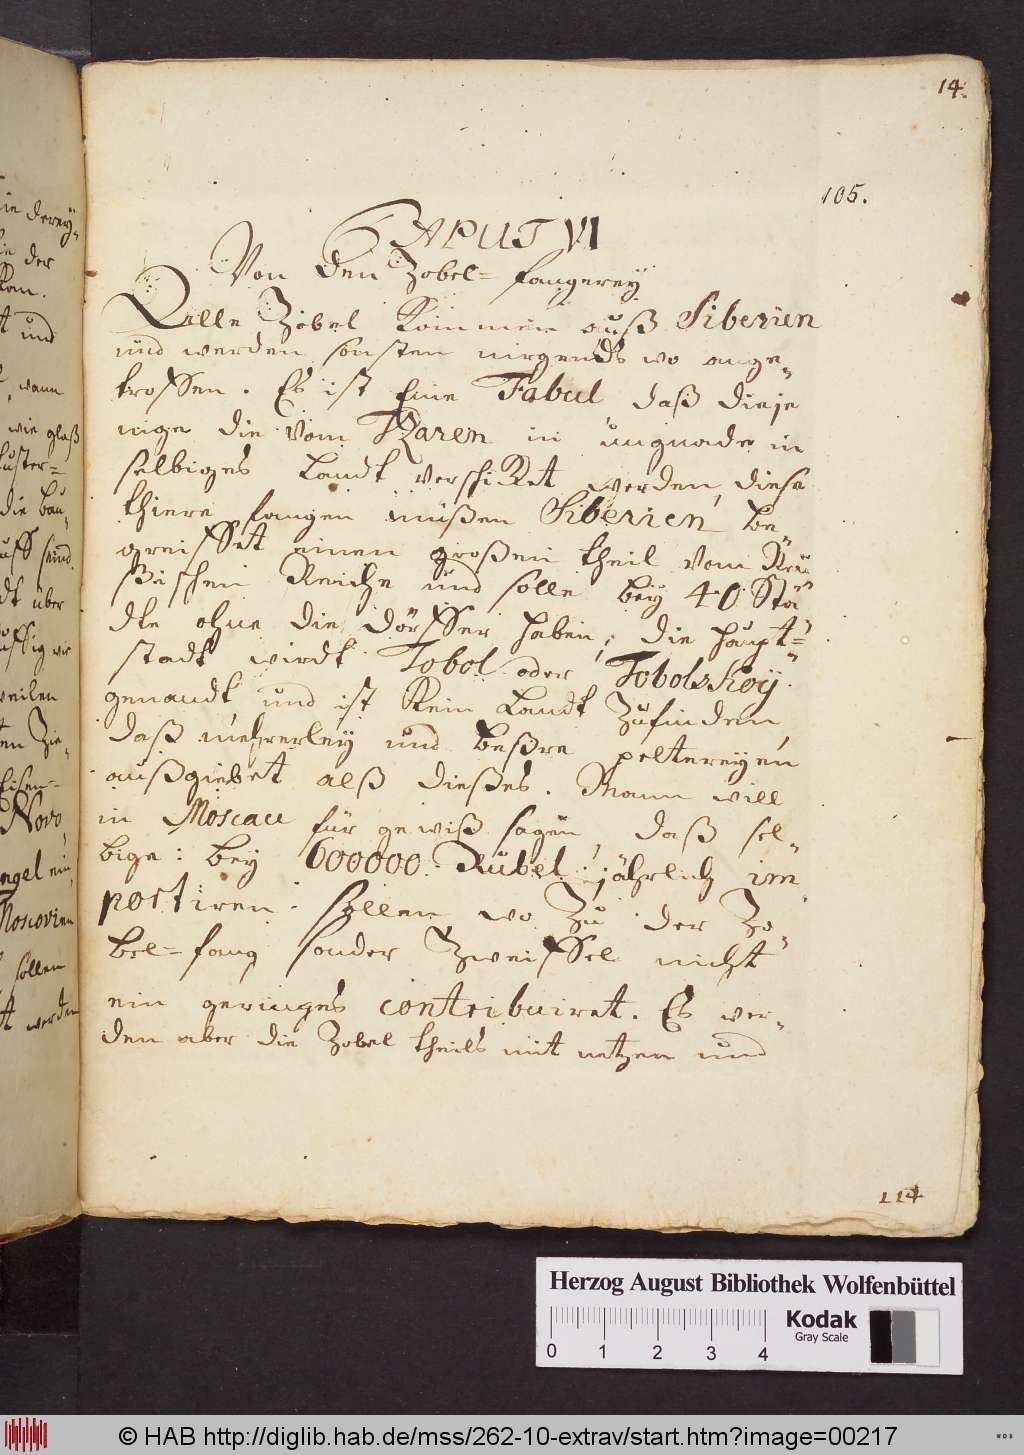 14.
105.
CAPUT VI
Von den Zobel-fangerey
Alle Zobel kommen auß Siberien
und werden sonsten nirgends wo ange-
troffen. Es ist Eine Fabul, daß dieje
nige die vom Tzaren in ungnade in
selbiges Landt verschikket werden, diese
thiere fangen müßen Siberien be
greiffet einen großen theil vom Reu
ßischen Reiche und solle bey 40 Stä
dte ohne die dörffer haben; die haupt-
stadt wirdt Tobol oder Tobolskoy
genandt und ist Kein Landt zufinden
daß mehrerley und beßre peltereyen
außgiebet alß dießes. Mann will
in Moscau für gewiß sagen, daß sel-
bige: bey 600000 Rubel jährlich im
portiren sollen wo zu der Zo-
bel-fang sonder Zweiffel nicht
ein geringes contribuiret. Es wer-
den aber die Zobel theils mit netzen und
114
ie derey-
ie der
kan.
t und
, wann
wie glaß
uster-
die bau-
uff sind.
dt über
uffig wie
weilen
en Zie-
Eisen-
Novo,
engel ein,
Moscovien
sollen
t werden
Herzog August Bibliothek Wolfenbüttel
0 1 2 3 4
Kodak
Gray Scale
© HAB http://diglib.hab.de/mss/262-10-extrav/start.htm?image=00217
WDB